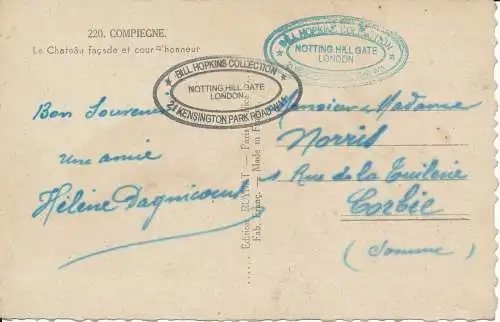 220. COMPIEGNE.
Le Chateau façade et cour d'honneur
BILL HOPKINS COLLECTION
NOTTING HILL GATE
LONDON
21 KENSINGTON PARK ROAD
BILL HOPKINS COLLECTION
NOTTING HILL GATE
LONDON
Bon Souvenir
une amie
Hélène
Monsieur Madame
Norris
1 Rue de la Tuilerie
Corbie
(Somme)
Edition
Paris
Fab. Franç. — Made in